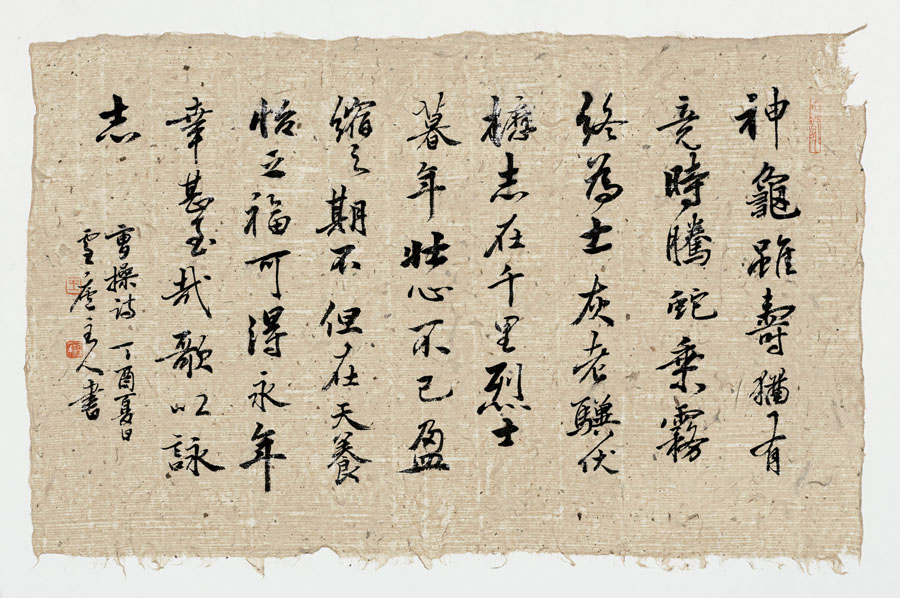 神龜雖壽猶有
竟時騰蛇乘霧
終為土灰老驥伏
櫪志在千里烈士
暮年壯心不已盈
縮之期不但在天養
怡之福可得永年
幸甚至哉歌以詠
志
曹操詩 丁酉夏日
主人書